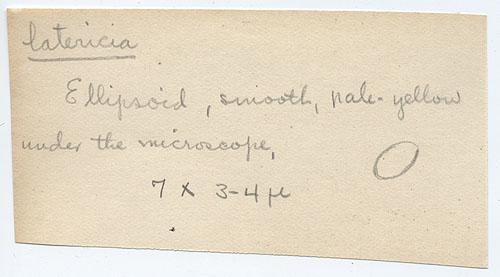 latericia
Ellipsoid, smooth, pale-yellow
under the microscope,
7 x 3-4 µ